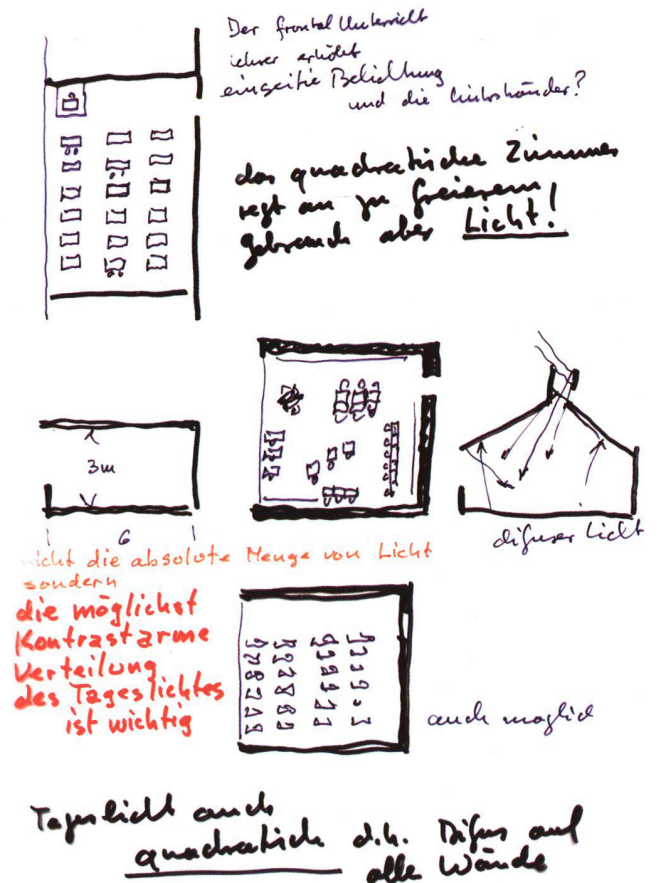 Der frontal Unterricht
Lehrer erhöht
einseitie Belichtung
und die Linkshänder?
das quadratische Zimmer
regt an zu freierem
gebrauch aber Licht!
3m
6
nicht die absolute Menge von Licht
sondern
die möglichst
Kontrastarme
Verteilung
des Tageslichtes
ist wichtig
difuser Licht
auch möglich
Tageslicht auch
quadratisch d.h. Difus auf
alle Wände